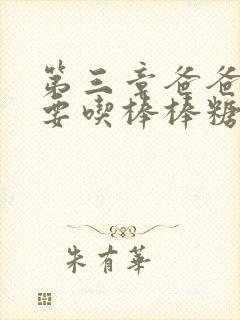 第三章爸爸
要喫棒棒糖
朱有華